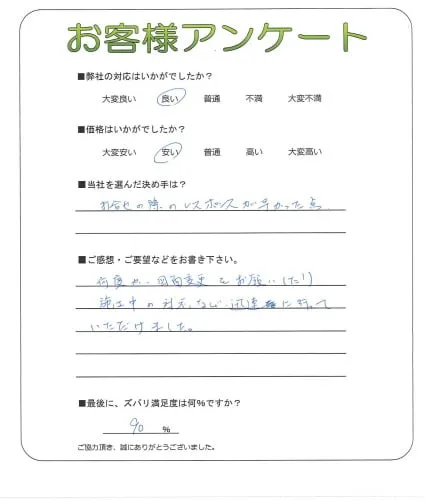 お客様アンケート
■弊社の対応はいかがでしたか?
大変良い 良い 普通 不満 大変不満
■価格はいかがでしたか?
大変安い 安い 普通 高い 大変高い
■当社を選んだ決め手は?
お問合せの際のレスポンスが早かった点
■ご感想・ご要望などをお書き下さい。
何度か、図面変更をお願いした!)
施工中の対応など、迅速に行って
いただけました。
■最後に、ズバリ満足度は何%ですか?
90 %
ご協力頂き、誠にありがとうございました。